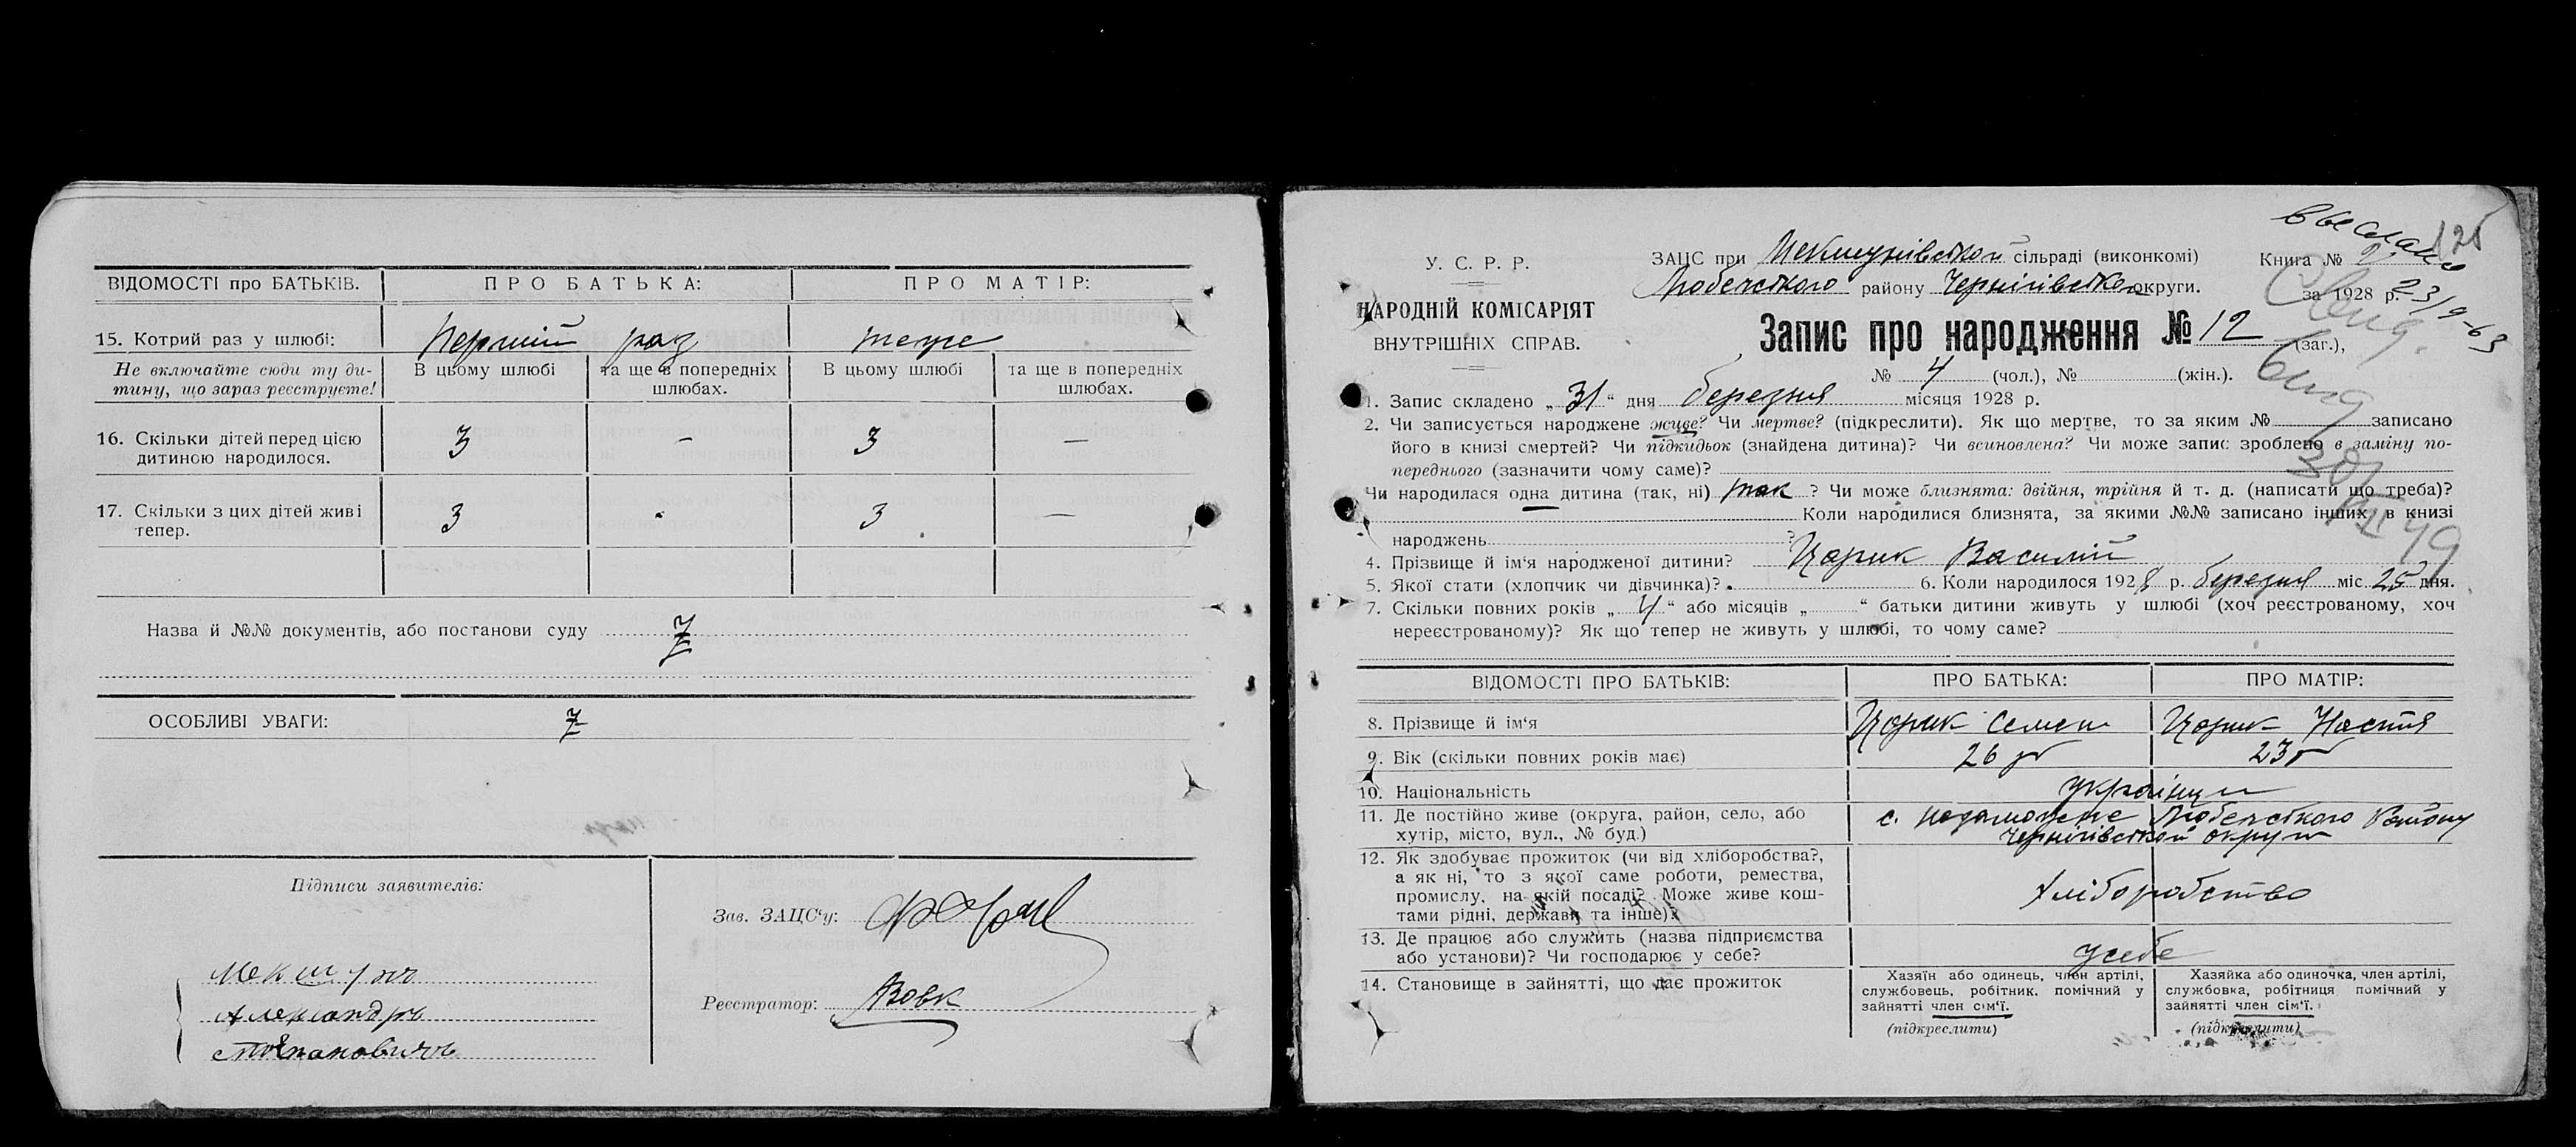 ВІДОМОСТІ про БАТЬКІВ. ПРО БАТЬКА: ПРО МАТІР:
15. Котрий раз у шлюбі: Перший раз теже
Не включайте сюди ту ди- В цьому шлюбі та ще в попередніх В цьому шлюбі та ще в попередніх
тину, що зараз реєструєте! шлюбах. шлюбах.
16. Скільки дітей перед цією 3 - 3 —
дитиною народилося.
17. Скільки з цих дітей живі 3 - 3 —
тепер.
Назва й №№ документів, або постанови суду
ОСОБЛИВІ УВАГИ:
Підписи заявителів:
Зав. ЗАЦС‘у:
Мекшун
Реєстратор: Вовк
Александръ
Степановичъ
У. С. Р. Р.
НАРОДНІЙ КОМІСАРІЯТ
ВНУТРІШНІХ СПРАВ.
ЗАЦС при Мекшунівской сільраді (виконкомі) Книга № 2
Любечського району Чернігівської округи. за 1928 р.
выслано
125
23/9-63
Запис про народження № 12 (заг.),
№ 4 (чол.), № (жін.).
1. Запис складено „31“ дня березня місяця 1928 р.
2. Чи записується народжене живе? Чи мертве? (підкреслити). Як що мертве, то за яким № записано
його в книзі смертей? Чи підкидьок (знайдена дитина)? Чи всиновлена? Чи може запис зроблено в заміну по-
переднього (зазначити чому саме)?
Чи народилася одна дитина (так, ні) так ? Чи може близнята: двійня, трійня й т. д. (написати що треба)?
Коли народилися близнята, за якими №№ записано інших в книзі
народжень ?
4. Прізвище й ім‘я народженої дитини? Царик Василій
5. Якої стати (хлопчик чи дівчинка)? 6. Коли народилося 1928 р. березня міс. 25 дня.
7. Скільки повних років „4“ або місяців „ “ батьки дитини живуть у шлюбі (хоч реєстрованому, хоч
нереєстрованому)? Як що тепер не живуть у шлюбі, то чому саме?
ВІДОМОСТІ ПРО БАТЬКІВ: ПРО БАТЬКА: ПРО МАТІР:
8. Прізвище й ім‘я Царик Семен Царик Настя
9. Вік (скільки повних років має) 26 р 23 р
10. Національність українци
11. Де постійно живе (округа, район, село, або с. Любечського Району
хутір, місто, вул., № буд.) Чернігівської округи
12. Як здобуває прожиток (чи від хліборобства?,
а як ні, то з якої саме роботи, ремества,
промислу, на якій посаді? Може живе кош- хліборобство
тами рідні, держави та інше)?
13. Де працює або служить (назва підприємства
або установи)? Чи господарює у себе? усебе
14. Становище в зайнятті, що дає прожиток
Хазяїн або одинець, член артілі,
службовець, робітник, помічний у
зайнятті член сім‘ї.
(підкреслити)
Хазяйка або одиночка, член артілі,
службовка, робітниця помічний у
зайнятті член сім‘ї.
(підкреслити)